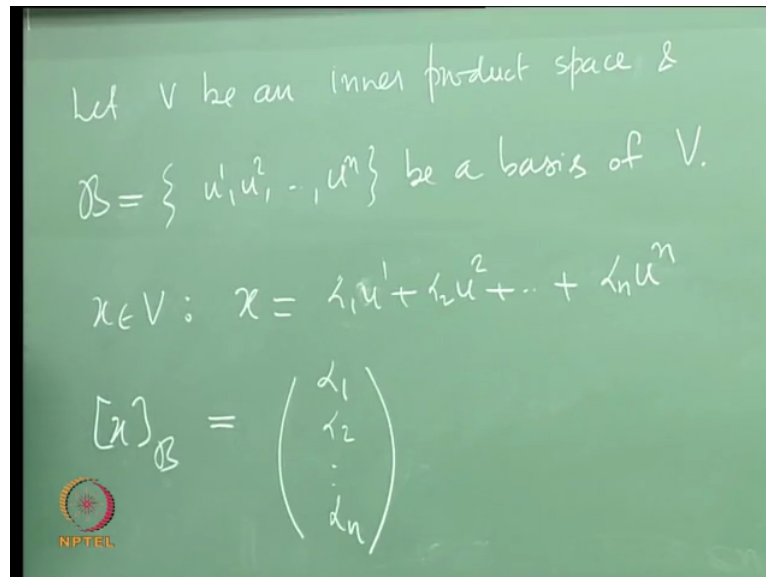 Let V be an inner product space &
ℬ = { u¹, u², .., uⁿ} be a basis of V.
x ∈ V : x = α₁u¹ + α₂u² + .. + αₙuⁿ
[x]_ℬ = ( α₁
α₂
:
αₙ )
NPTEL